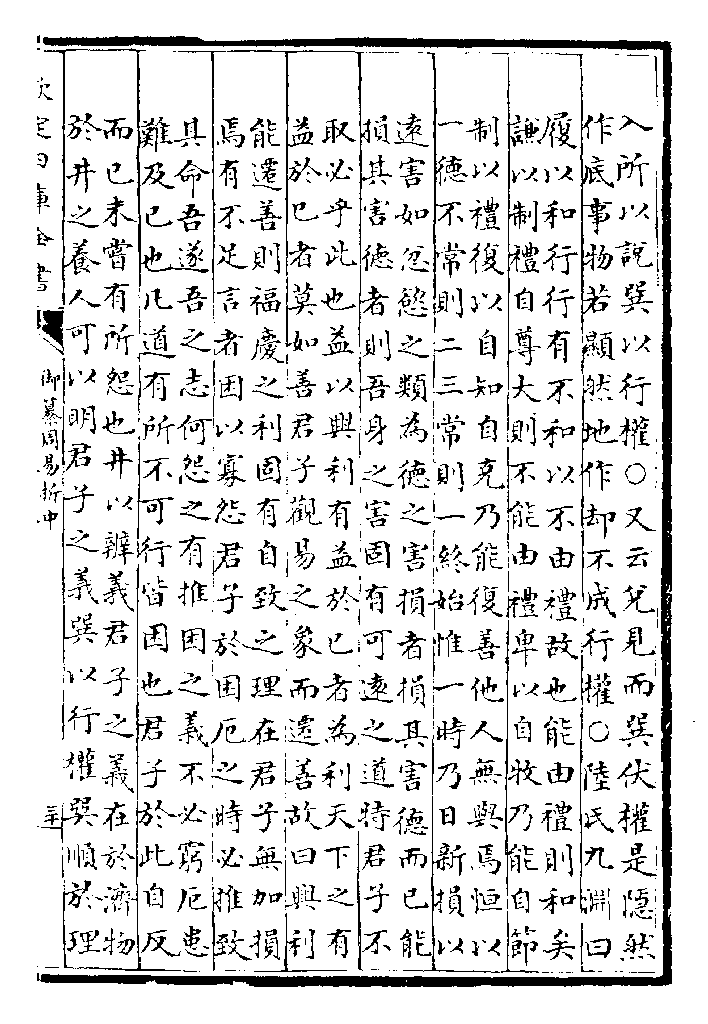 入所以說巽以行權○又云兌見而巽伏權是隱然
作底事物若顯然地作却不成行權○陸氏九淵曰
履以和行行有不和以不由禮故也能由禮則和矣
謙以制禮自尊大則不能由禮卑以自牧乃能自節
制以禮復以自知自克乃能復善他人無與焉恒以
一德不常則二三常則一終始惟一時乃日新損以
遠害如忿慾之類為德之害損者損其害德而已能
損其害德者則吾身之害固有可遠之道特君子不
取必乎此也益以興利有益於已者為利天下之有
益於已者莫如善君子觀易之象而遷善故曰興利
能遷善則福慶之利固有自致之理在君子無加損
焉有不足言者困以寡怨君子於困厄之時必推致
其命吾遂吾之志何怨之有推困之義不必窮厄患
難及已也凡道有所不可行皆困也君子於此自反
而已未嘗有所怨也井以辨義君子之義在於濟物
於井之養人可以明君子之義巽以行權巽順於理
欽定四庫全書
御纂周易折中